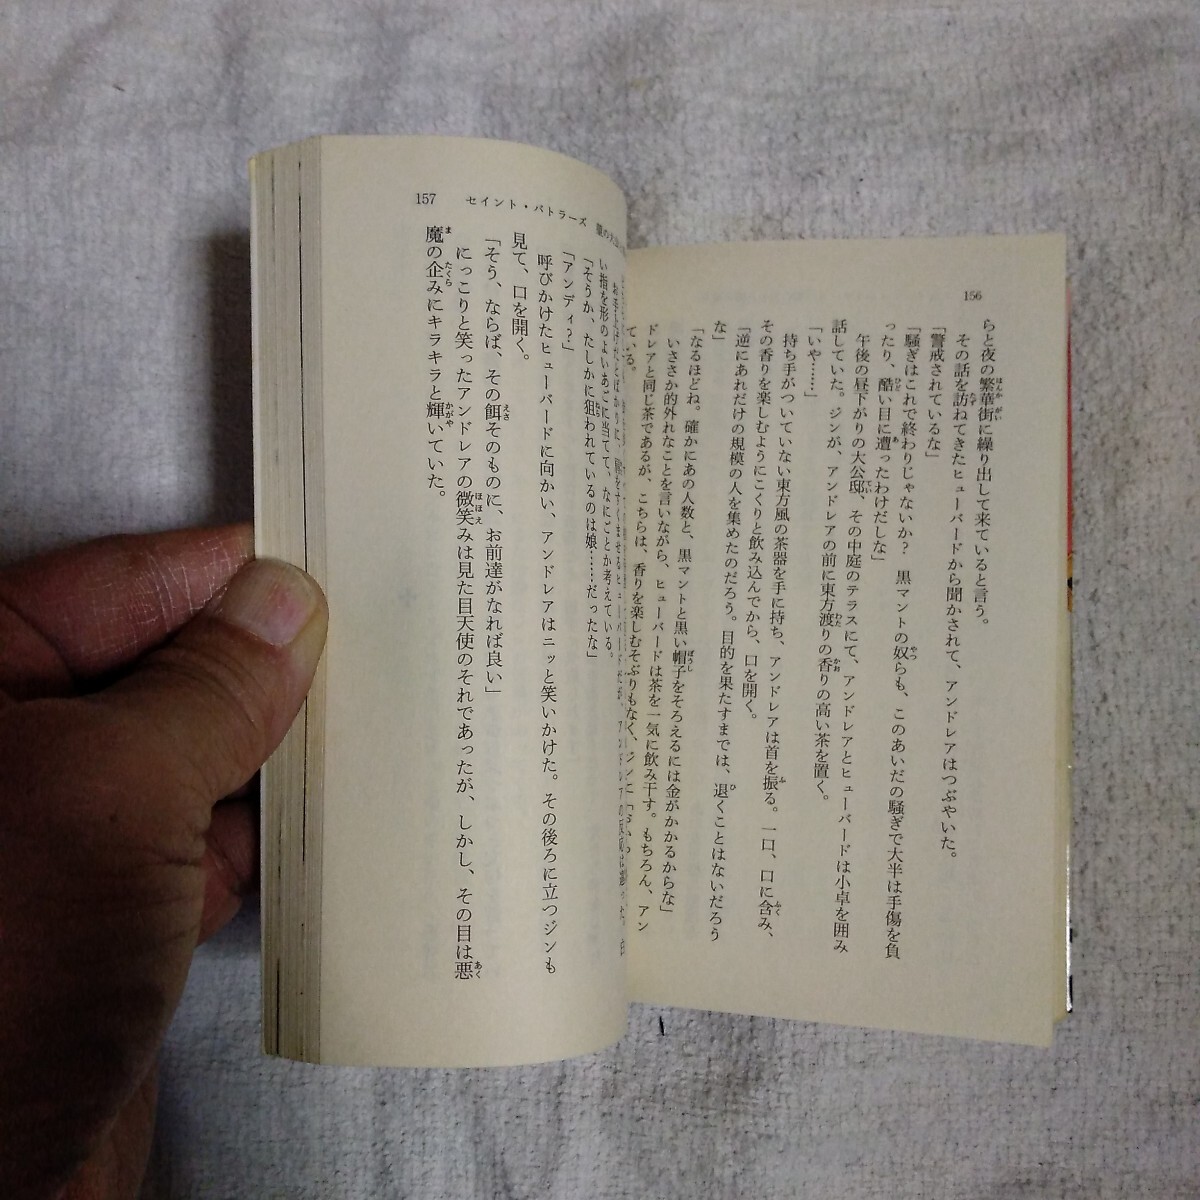 156
らと夜の繁華街に繰り出して来ていると言う。
その話を訪ねてきたヒューバードから聞かされて、アンドレアはつぶやいた。
「警戒されているな」
「騒ぎはこれで終わりじゃないか？　黒マントの奴らも、このあいだの騒ぎで大半は手傷を負
ったり、酷い目に遭ったわけだしな」
午後の昼下がりの大公邸、その中庭のテラスにて、アンドレアとヒューバードは小卓を囲み
話していた。ジンが、アンドレアの前に東方渡りの香りの高い茶を置く。
「いや……」
持ち手がついていない東方風の茶器を手に持ち、アンドレアは首を振る。一口、口に含み、
その香りを楽しむようにこくりと飲み込んでから、口を開く。
「逆にあれだけの規模の人を集めたのだろう。目的を果たすまでは、退くことはないだろう
な」
「なるほどね。確かにあの人数と、黒マントと黒い帽子をそろえるには金がかかるからな」
いささか的外れなことを言いながら、ヒューバードは茶を一気に飲み干す。もちろん、アン
ドレアと同じ茶であるが、こちらは、香りを楽しむそぶりもなく、ジンに
ている。
157 セイント・バトラーズ
い指を形のよいあごに当てて、なにごとか考えている。
「そうか、たしかに狙われているのは娘……だったな」
「アンディ？」
呼びかけたヒューバードに向かい、アンドレアはニッと笑いかけた。その後ろに立つジンも
見て、口を開く。
「そう、ならば、その餌そのものに、お前達がなれば良い」
にっこりと笑ったアンドレアの微笑みは見た目天使のそれであったが、しかし、その目は悪
魔の企みにキラキラと輝いていた。